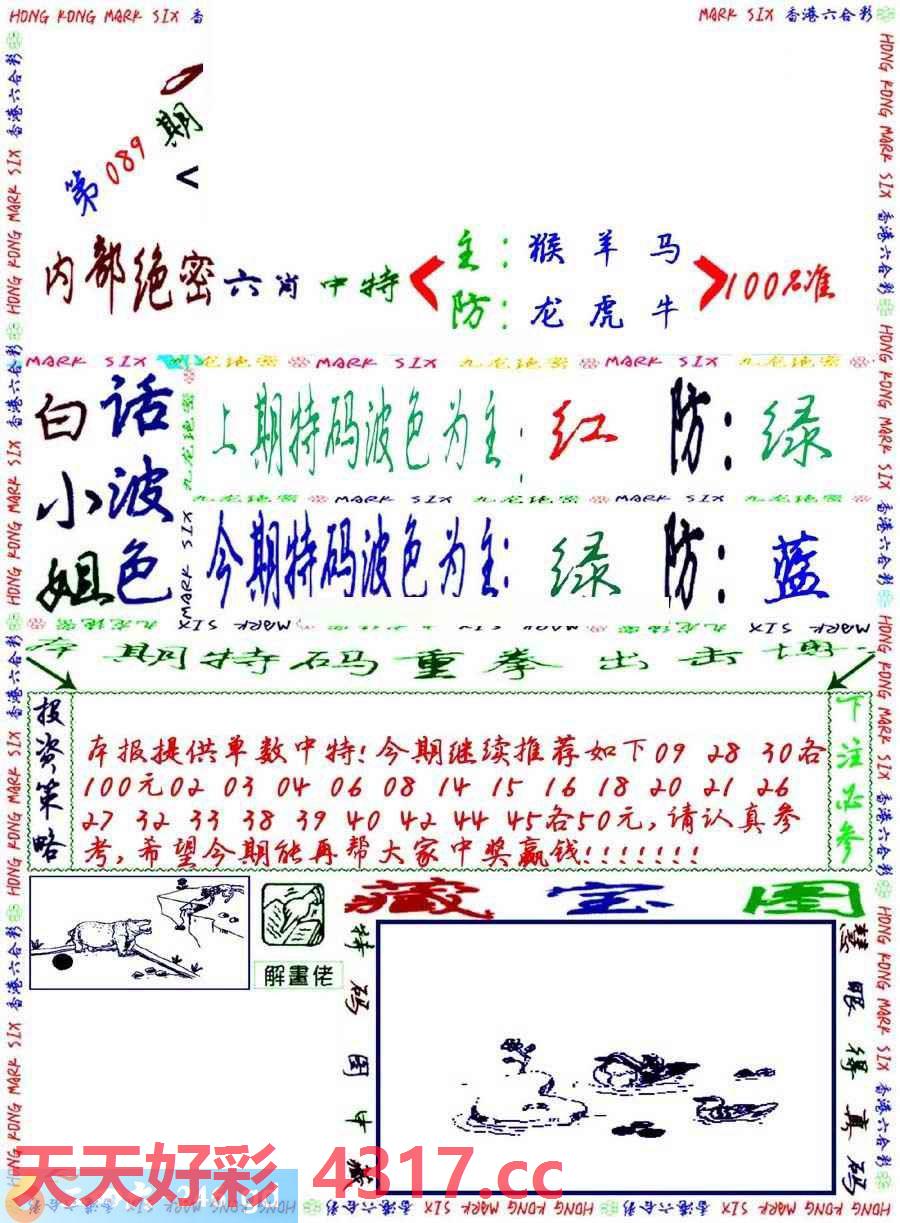 HONG KONG MARK SIX 香
MARK SIX 香港六合彩
第089期
内部绝密六肖中特
主:猴羊马
防:龙虎牛
100%准
MARK SIX 九龙地密 MARK SIX 九龙地密 MARK SIX 九龙地密
白小姐
话波色
上期特码波色为主:红 防:绿
九龙地密 MARK SIX 九龙地密 MARK SIX
今期特码波色为主:绿 防:蓝
MARK SIX 九龙地密 MARK SIX 九龙地密 MARK SIX
期特码重拳出击
投资策略
本报提供单数中特!今期继续推荐如下09 28 30各
100元02 03 04 06 08 14 15 16 18 20 21 26
27 32 33 38 39 40 42 44 45各50元,请认真参
考,希望今期能再帮大家中奖赢钱!!!!!!!
下注必参
藏宝图
解畫佬
特码图中
慧眼得真码
天天好彩 4317.cc
HONG KONG MARK SIX 香港六合彩